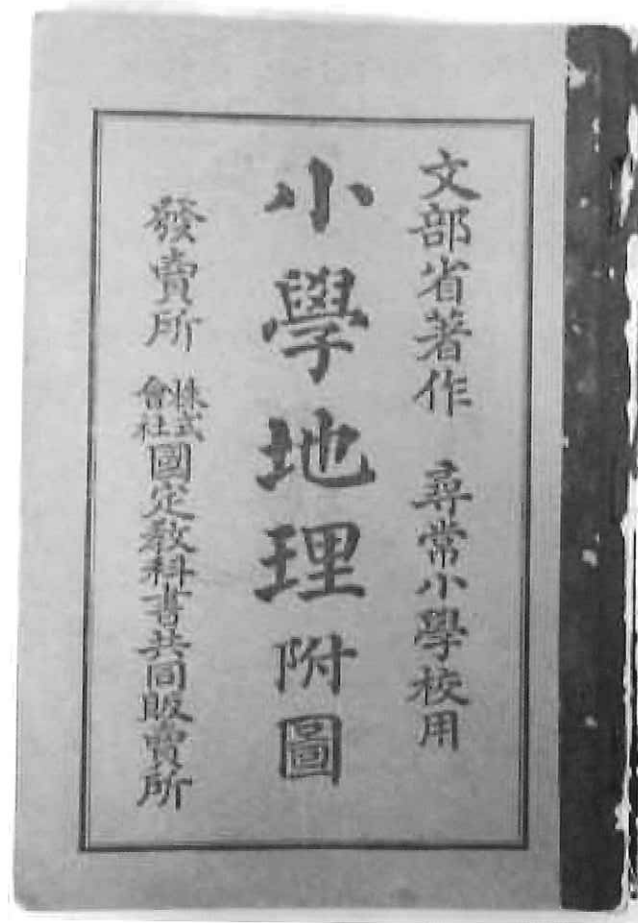 文部省著作 尋常小學校用
小學地理附圖
發賣所 株式會社國定敎科書共同販賣所